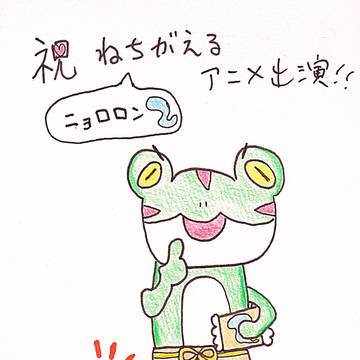 祝 ねちがえる
アニメ出演!!
ニョロロン